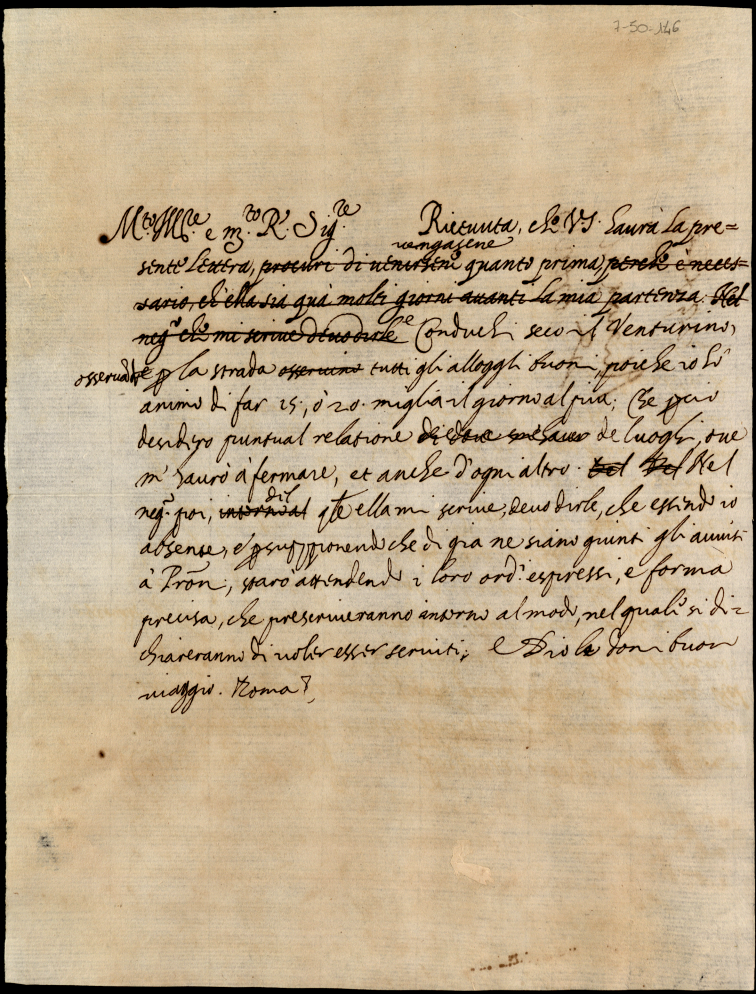 7-50-146
M.to Ill.re e m.to R. Sig.re Riceuuta, che V.S. haurà la pre=
uengasene
sente lettera, procuri di uenirsene quanto prima, perche è neces=
sario, ch'ella sia quà molti giorni auanti la mia partenza. Nel
neg.o che mi scriue deuo dirle e Conduchi seco il Venturino,
osseruando p la strada osseruino tutti gli alloggi buoni, poiche io hò
animo di far 15, ò 20 miglia il giorno al più; Che però
desidero puntual relatione de luoghi, oue
m' haurò à fermare, et anche d'ogni altro. Nel
del
neg.o poi, intorno al q.le ella mi scriue, deuo dirle, che essendo io
absente, e p supponendo che di gia ne siano giunti gli auuisi
à Pron, starò attendendo i loro ord.i espressi, e forma
precisa, che prescriueranno intorno al modo, nel quale si di=
chiareranno di uoler esser seruiti; e Dio le doni buon
uiaggio. Roma